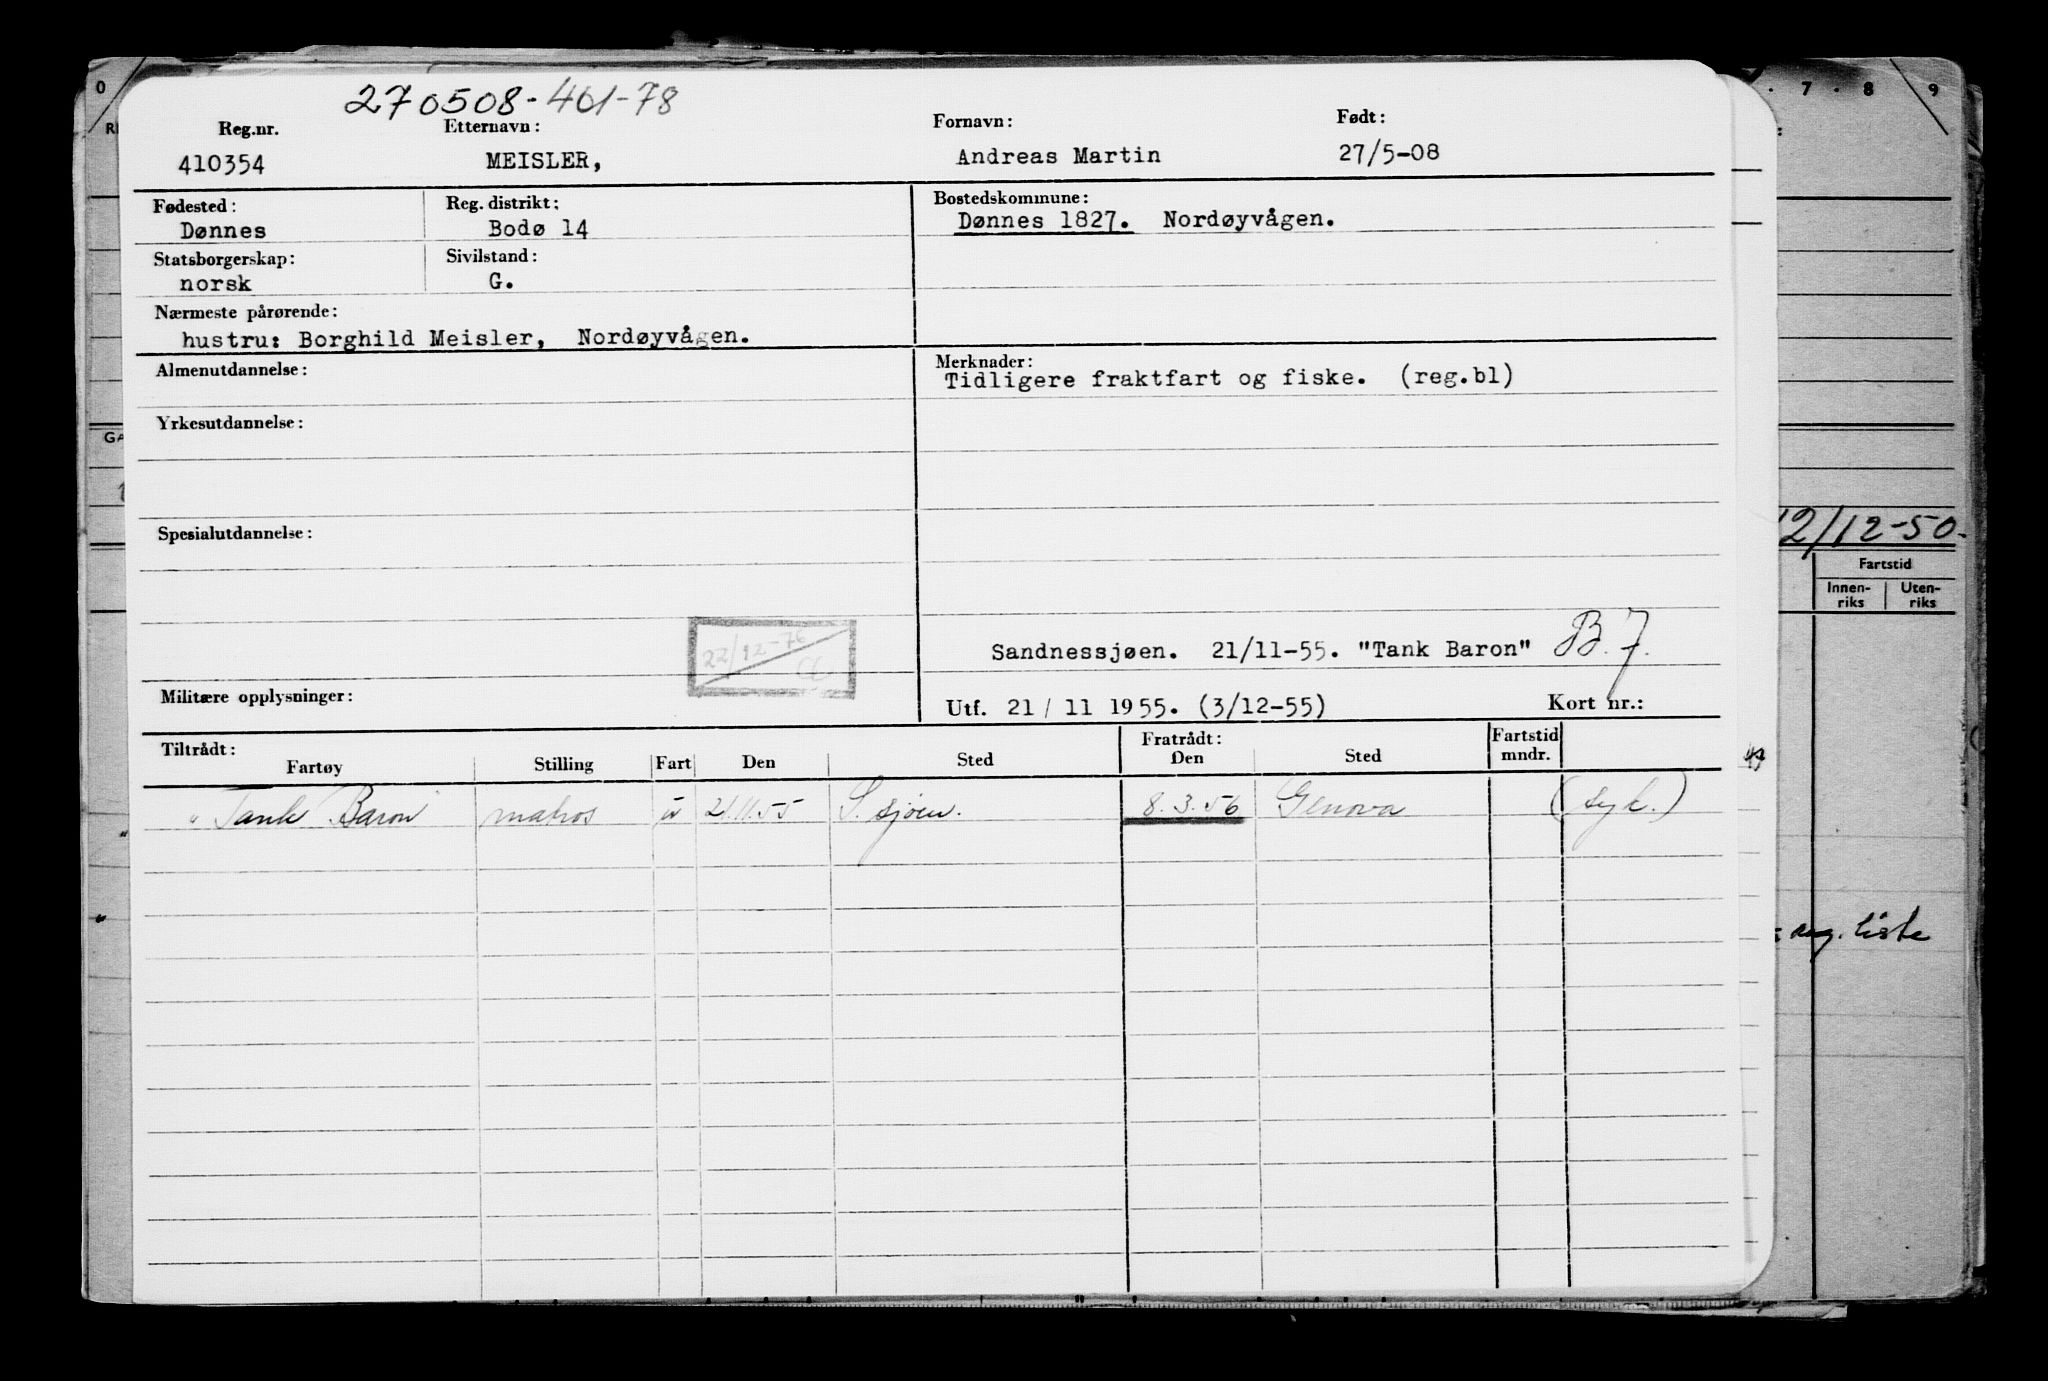 270508-401-78
Reg.nr. Etternavn: Fornavn: Født:
410354 MEISLER, Andreas Martin 27/5-08
Fødested: Reg. distrikt: Bostedskommune:
Dønnes Bodø 14 Dønnes 1827. Nordøyvågen.
Statsborgerskap: Sivilstand:
norsk G.
Nærmeste pårørende:
hustru: Borghild Meisler, Nordøyvågen.
Almenutdannelse: Merknader:
Tidligere fraktfart og fiske. (reg.bl)
Yrkesutdannelse:
Spesialutdannelse:
22/12-76
Sandnessjøen. 21/11-55. "Tank Baron" B.J.
Militære opplysninger: Utf. 21/11 1955. (3/12-55) Kort nr.:
Tiltrådt: Fratrådt: Fartstid
Fartøy Stilling Fart Den Sted Den Sted mndr.
"Tank Baron" matros u 21.11.55 S.sjøen. 8.3.56 Genova (syk.)
0 7 . 8 9
GA
12/12-50.
Fartstid
Innen-
riks
Uten-
riks
reg. liste